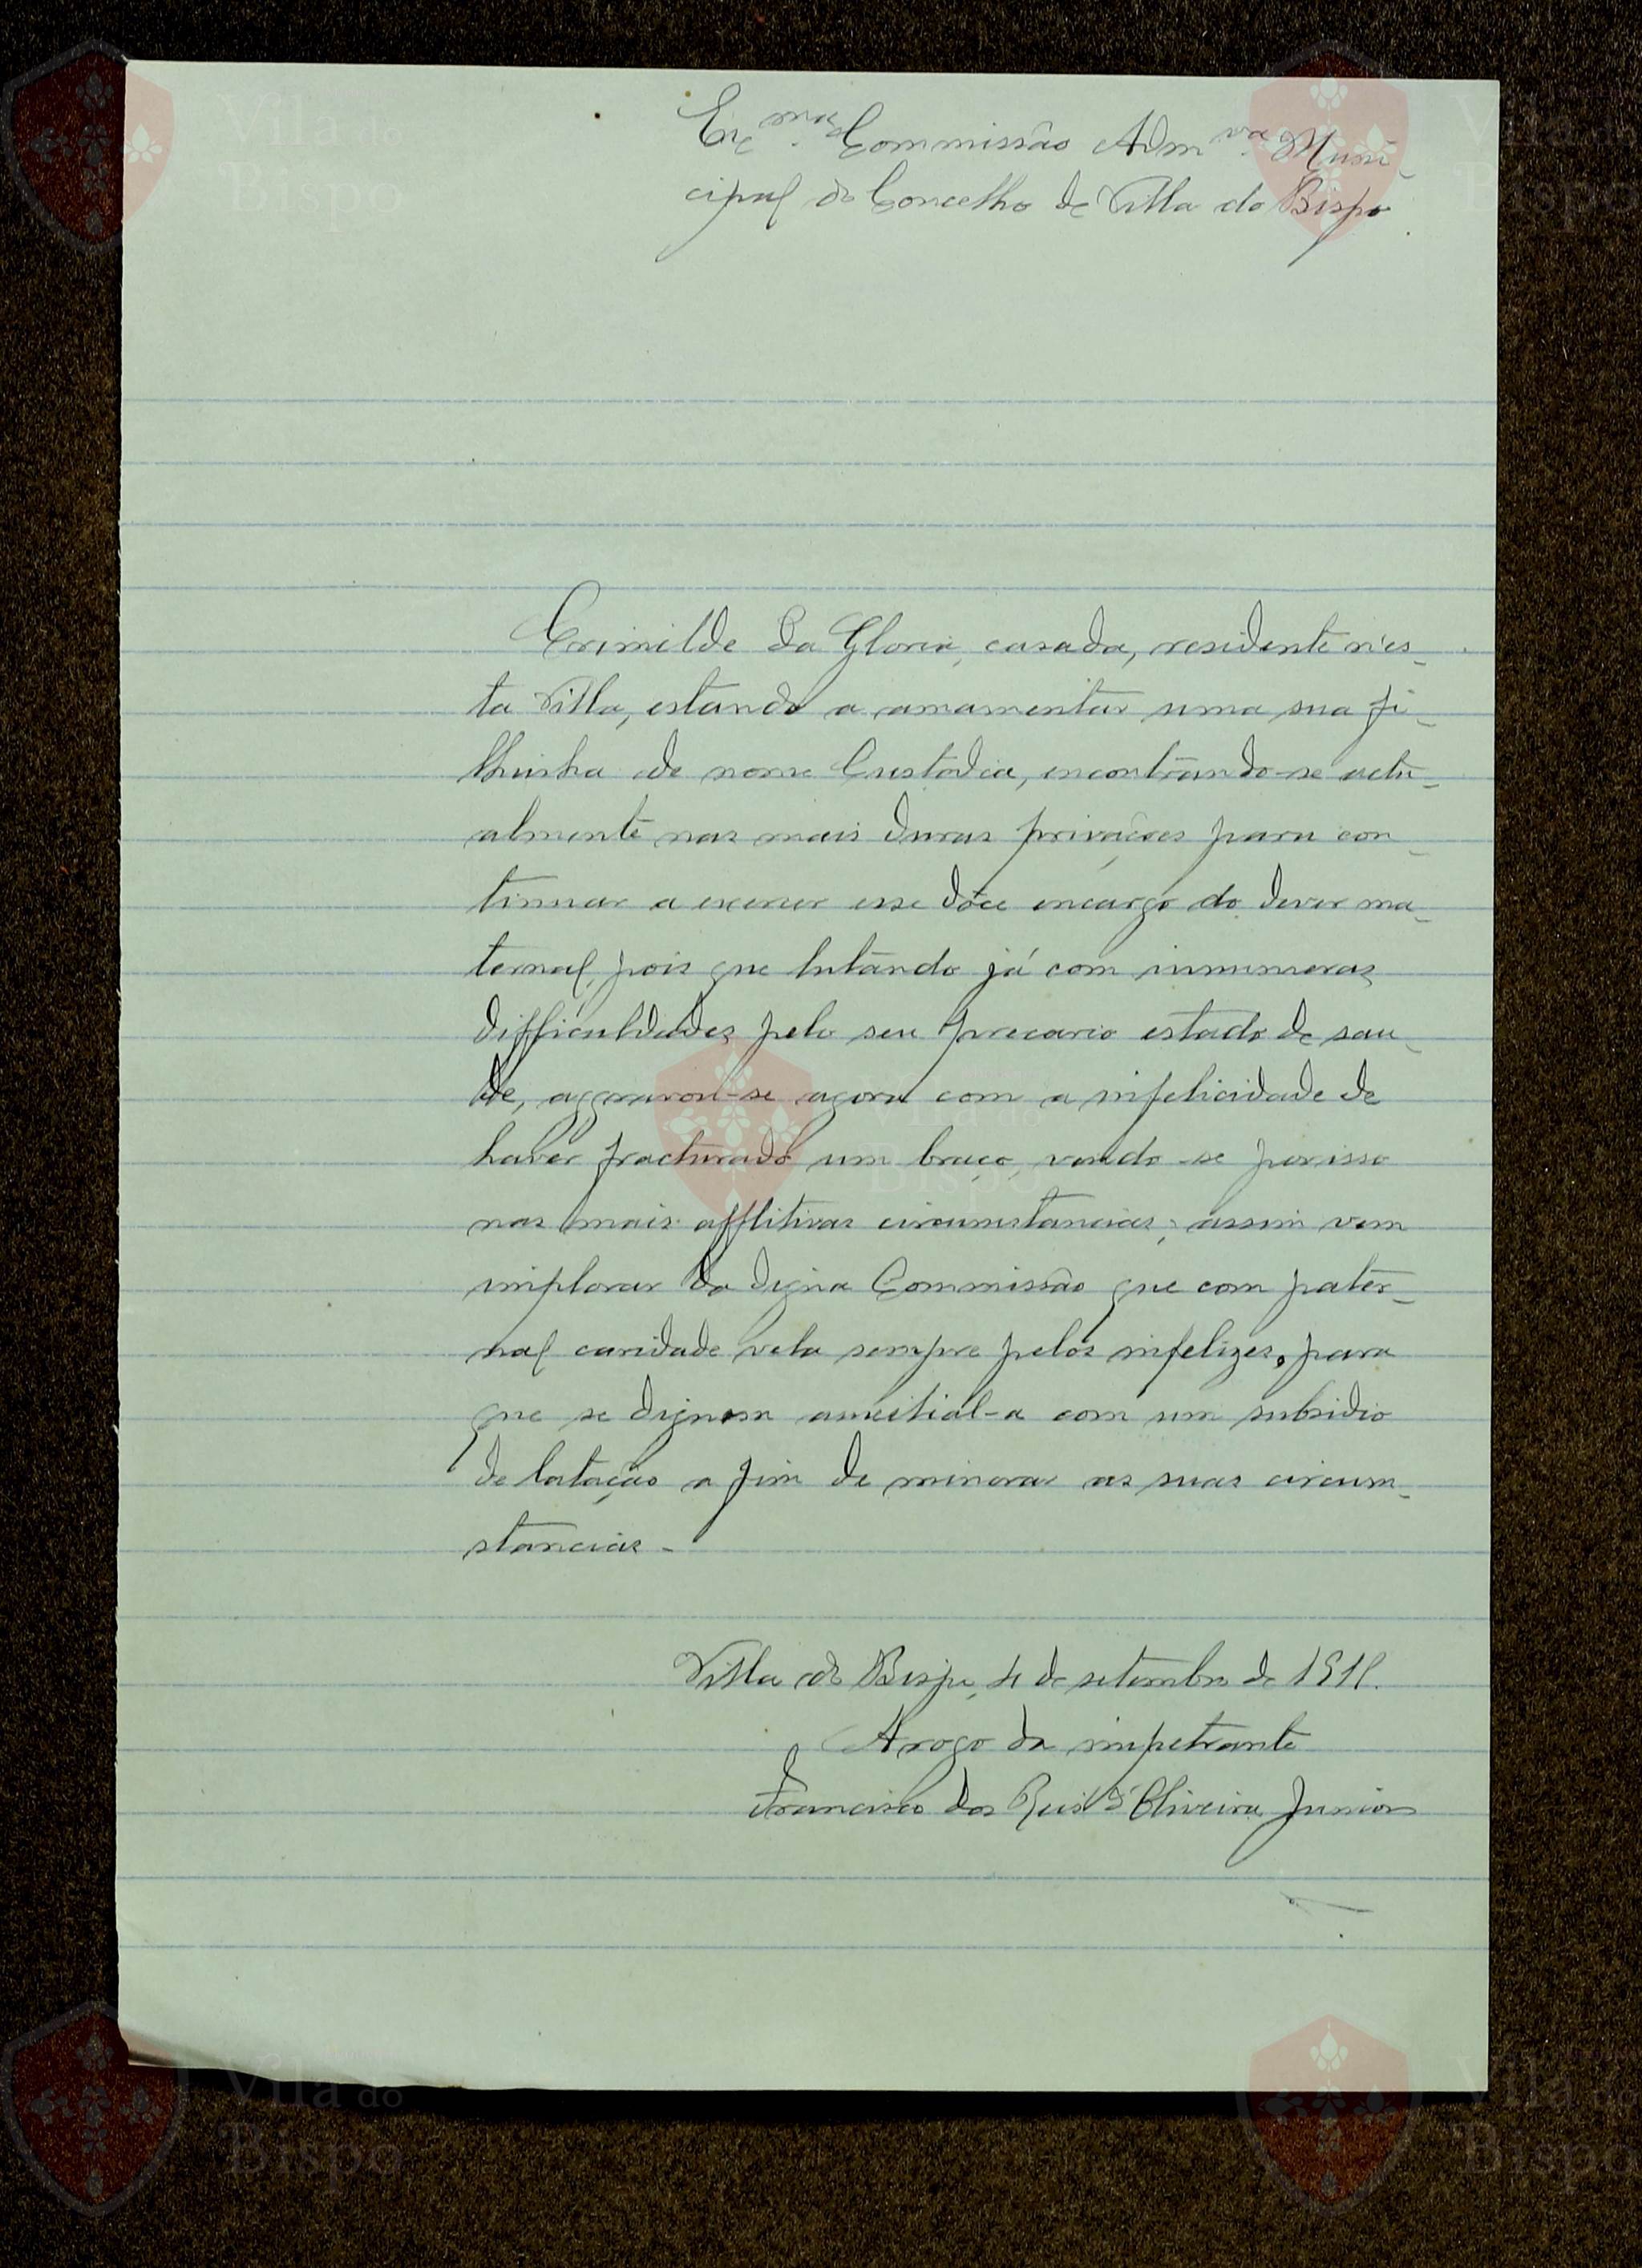 Exc.mª Commissão Adm.va Muni-
cipal do Concelho de Villa do Bispo.
Erimilde da Gloria, casada, residente n'es-
ta Villa, estando a amamentar uma sua fi-
lhinha de nome Custodia, encontrando-se actu-
almente nas mais duras privações para con-
tinuar a exercer esse dôce encargo do dever ma-
ternal, pois que lutando já com innumeras
difficuldades pelo seu precario estado de sau-
de, aggravou-se agora com a infelicidade de
haver fracturado um braço, vendo-se porisso
nas mais afflitivas circumstancias; assim vem
implorar da digna Commissão que com pater-
nal caridade vela sempre pelos infelizes, para
que se dignem auxilial-a com um subsidio
de latação a fim de minorar as suas circum-
stancias -
Villa do Bispo, 4 de setembro de 1911.
A rogo da impetrante
Francisco dos Reis d'Oliveira Junior
Vila do
Bispo
Vila do
Bispo
Vila do
Bispo